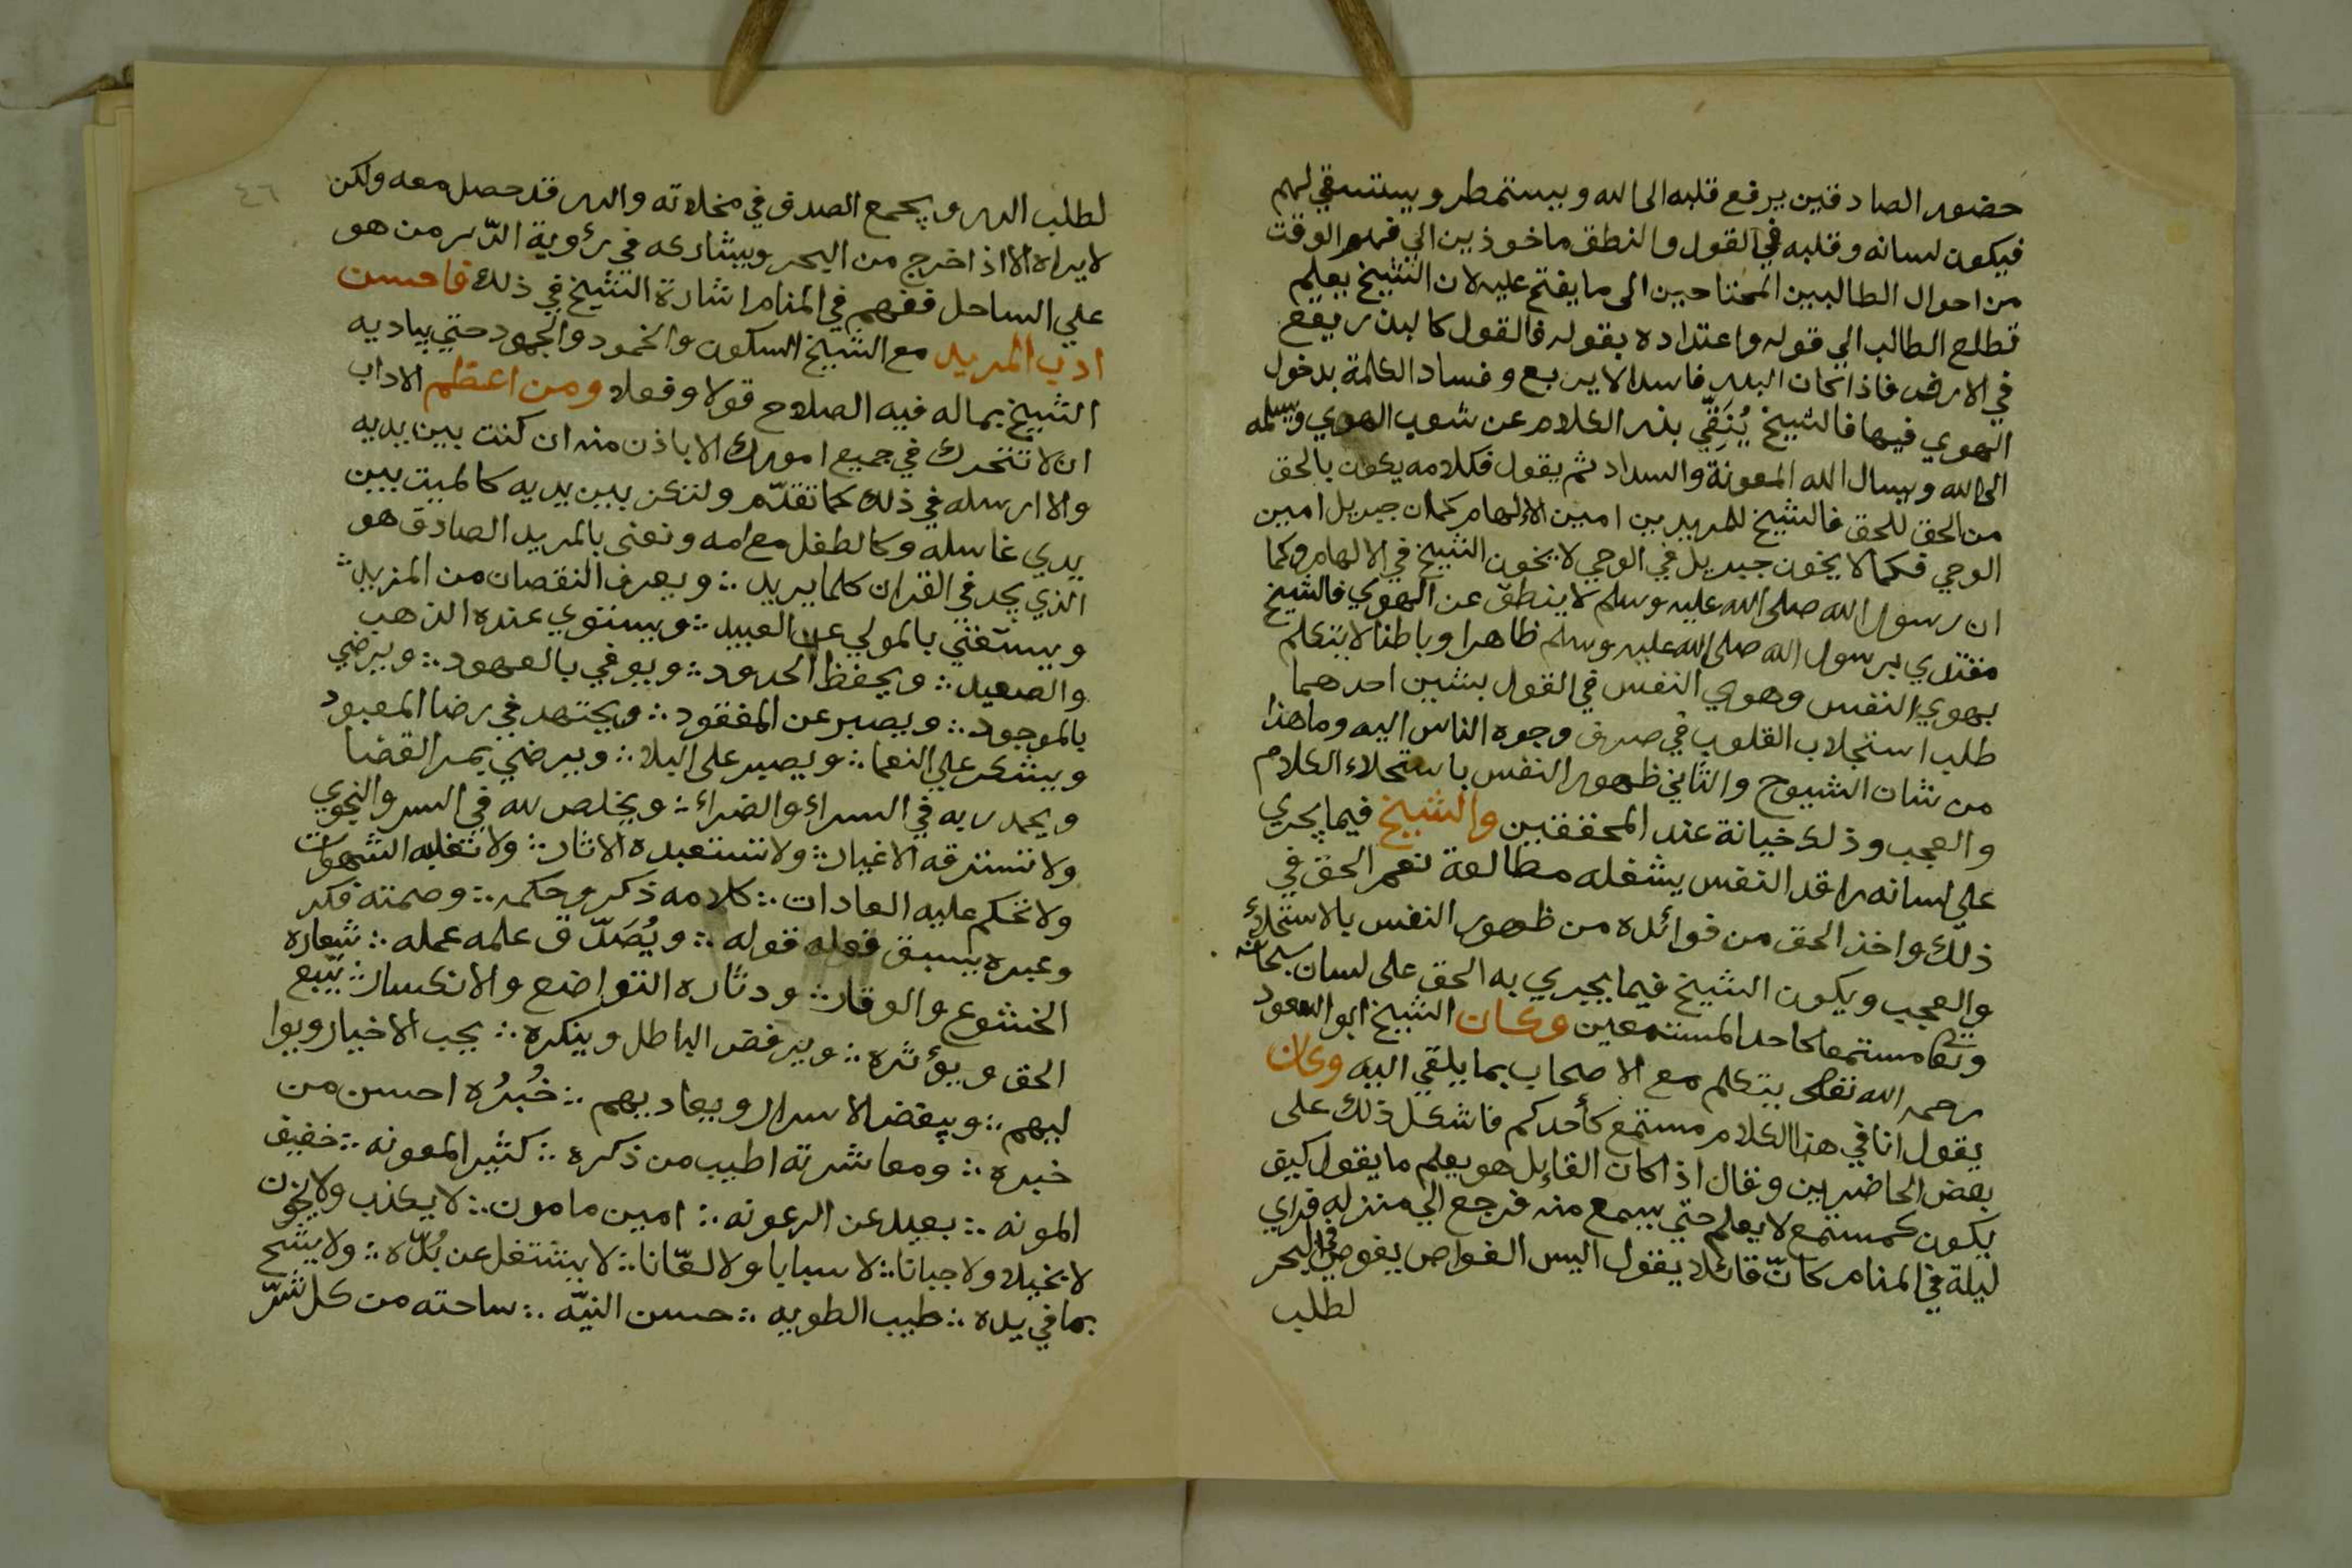 حضور الصادقين يرفع قلبه الى الله ويستمطر ويستسقي لهم
فيكون لسانه وقلبه في القول والنطق ماخوذين الي الوقت
من احوال الطالبين المحتاجين الى ما يفتح عليه لان الشيخ يعلم
تطلع الطالب الي قوله واعتداده بقوله فالقول كالبذر يقع
في الارض فاذا كان البذر فاسدا لا يربع وفساد الكلمة بدخول
الهوي فيها فالشيخ يُنَقِّي بذر الكلام عن شوب الهوي ويسلمه
الى الله ويسال الله المعونة والسداد ثم يقول فكلامه يكون بالحق
من الحق للحق فالشيخ للمريدين امين الالهام كما ان جبريل امين
الوحي فكما لا يخون جبريل في الوحي لا يخون الشيخ في الالهام وكما
ان رسول الله صلى الله عليه وسلم لا ينطق عن الهوي فالشيخ
مقتدي برسول الله صلى الله عليه وسلم ظاهرا وباطنا لا يتكلم
بهوي النفس وهوي النفس في القول بشيين احدهما
طلب استجلاب القلوب في صرف وجوه الناس اليه وما هذا
من شان الشيوخ والثاني ظهور النفس باستحلاء الكلام
والعجب وذلك خيانة عند المحققين والشيخ فيما يجري
علي لسانه راقد النفس يشغله مطالعة نعم الحق في
ذلك واخذ الحق من فوائده من ظهور النفس بالاستحلاء
والعجب ويكون الشيخ فيما يجريه الحق على لسان سبحانه
وتعا مستمعا كاحد المستمعين وكان الشيخ ابو السعود
رحمه الله تعالى يتكلم مع الاصحاب بما يلقي اليه وكان
يقول انا في هذا الكلام مستمع كأحدكم فاشكل ذلك على
بعض الحاضرين وقال اذا كان القايل هو يعلم ما يقول كيف
يكون كمستمع لا يعلم حتي يسمع منه فرجع الي منزله فراي
ليلة في المنام كانّ قائلا يقول اليس الغواص يغوص في البحر
لطلب
٤٦
لطلب الدر ويجمع الصدف في مخلاته والدر قد حصل معه ولكن
لا يراه الا اذا خرج من البحر ويشاركه في رؤية الدّر من هو
علي الساحل ففهم في المنام اشارة الشيخ في ذلك فاحسن
ادب المريد مع الشيخ السكون والخمود والجمود حتي يباديه
الشيخ بماله فيه الصلاح قولا وفعلا ومن اعظم الاداب
ان لا تتحرك في جميع امورك الا باذن منه ان كنت بين يديه
والا ارسله في ذلك كما تقدّم ولتكن بين يديه كالميت بين
يدي غاسله وكالطفل مع امه ونعني بالمريد الصادق هو
الذي يجد في القران كلما يريد ∴ ويعرف النقصان من المزيد ∴
ويستغني بالمولي عن العبيد ∴ ويستوي عنده الذهب
والصعيد ∴ ويحفظ الحدود ∴ ويوفي بالعهود ∴ ويرضي
بالموجود ∴ ويصبر عن المفقود ∴ ويجتهد في رضا المعبود
ويشكر علي النعما ∴ ويصبر على البلا ∴ ويرضي بمر القضا
ويحمد ربه في السراء والضراء ∴ ويخلص لله في السر والنجوي
ولا تسترقه الاغيار ∴ ولا تستعبده الاثار ∴ ولا تغلبه الشهوات
ولا تحكم عليه العادات ∴ كلامه ذكر وحكمه ∴ وصمته فكر
وعبره يسبق فعله قوله ∴ ويُصَدّق علمه عمله ∴ شعاره
الخشوع والوقار ∴ ودثاره التواضع والانكسار ∴ يتّبع
الحق ويؤثره ∴ ويرفض الباطل وينكره ∴ يحب الاخيار ويوا
ليهم ∴ ويبغض الاسرار ويعاديهم ∴ خُبرُه احسن من
خبره ∴ ومعاشرته اطيب من ذكره ∴ كثير المعونه ∴ خفيف
المونه ∴ بعيد عن الرعونه ∴ امين مامون ∴ لا يكذب ولا يخون
لا بخيلا ولا جبانا ∴ لا سبابا ولا لعّانا ∴ لا يشتغل عن بُدّه ∴ ولا يشح
بما في يده ∴ طيب الطويه ∴ حسن النيّه ∴ ساحته من كل شرّ